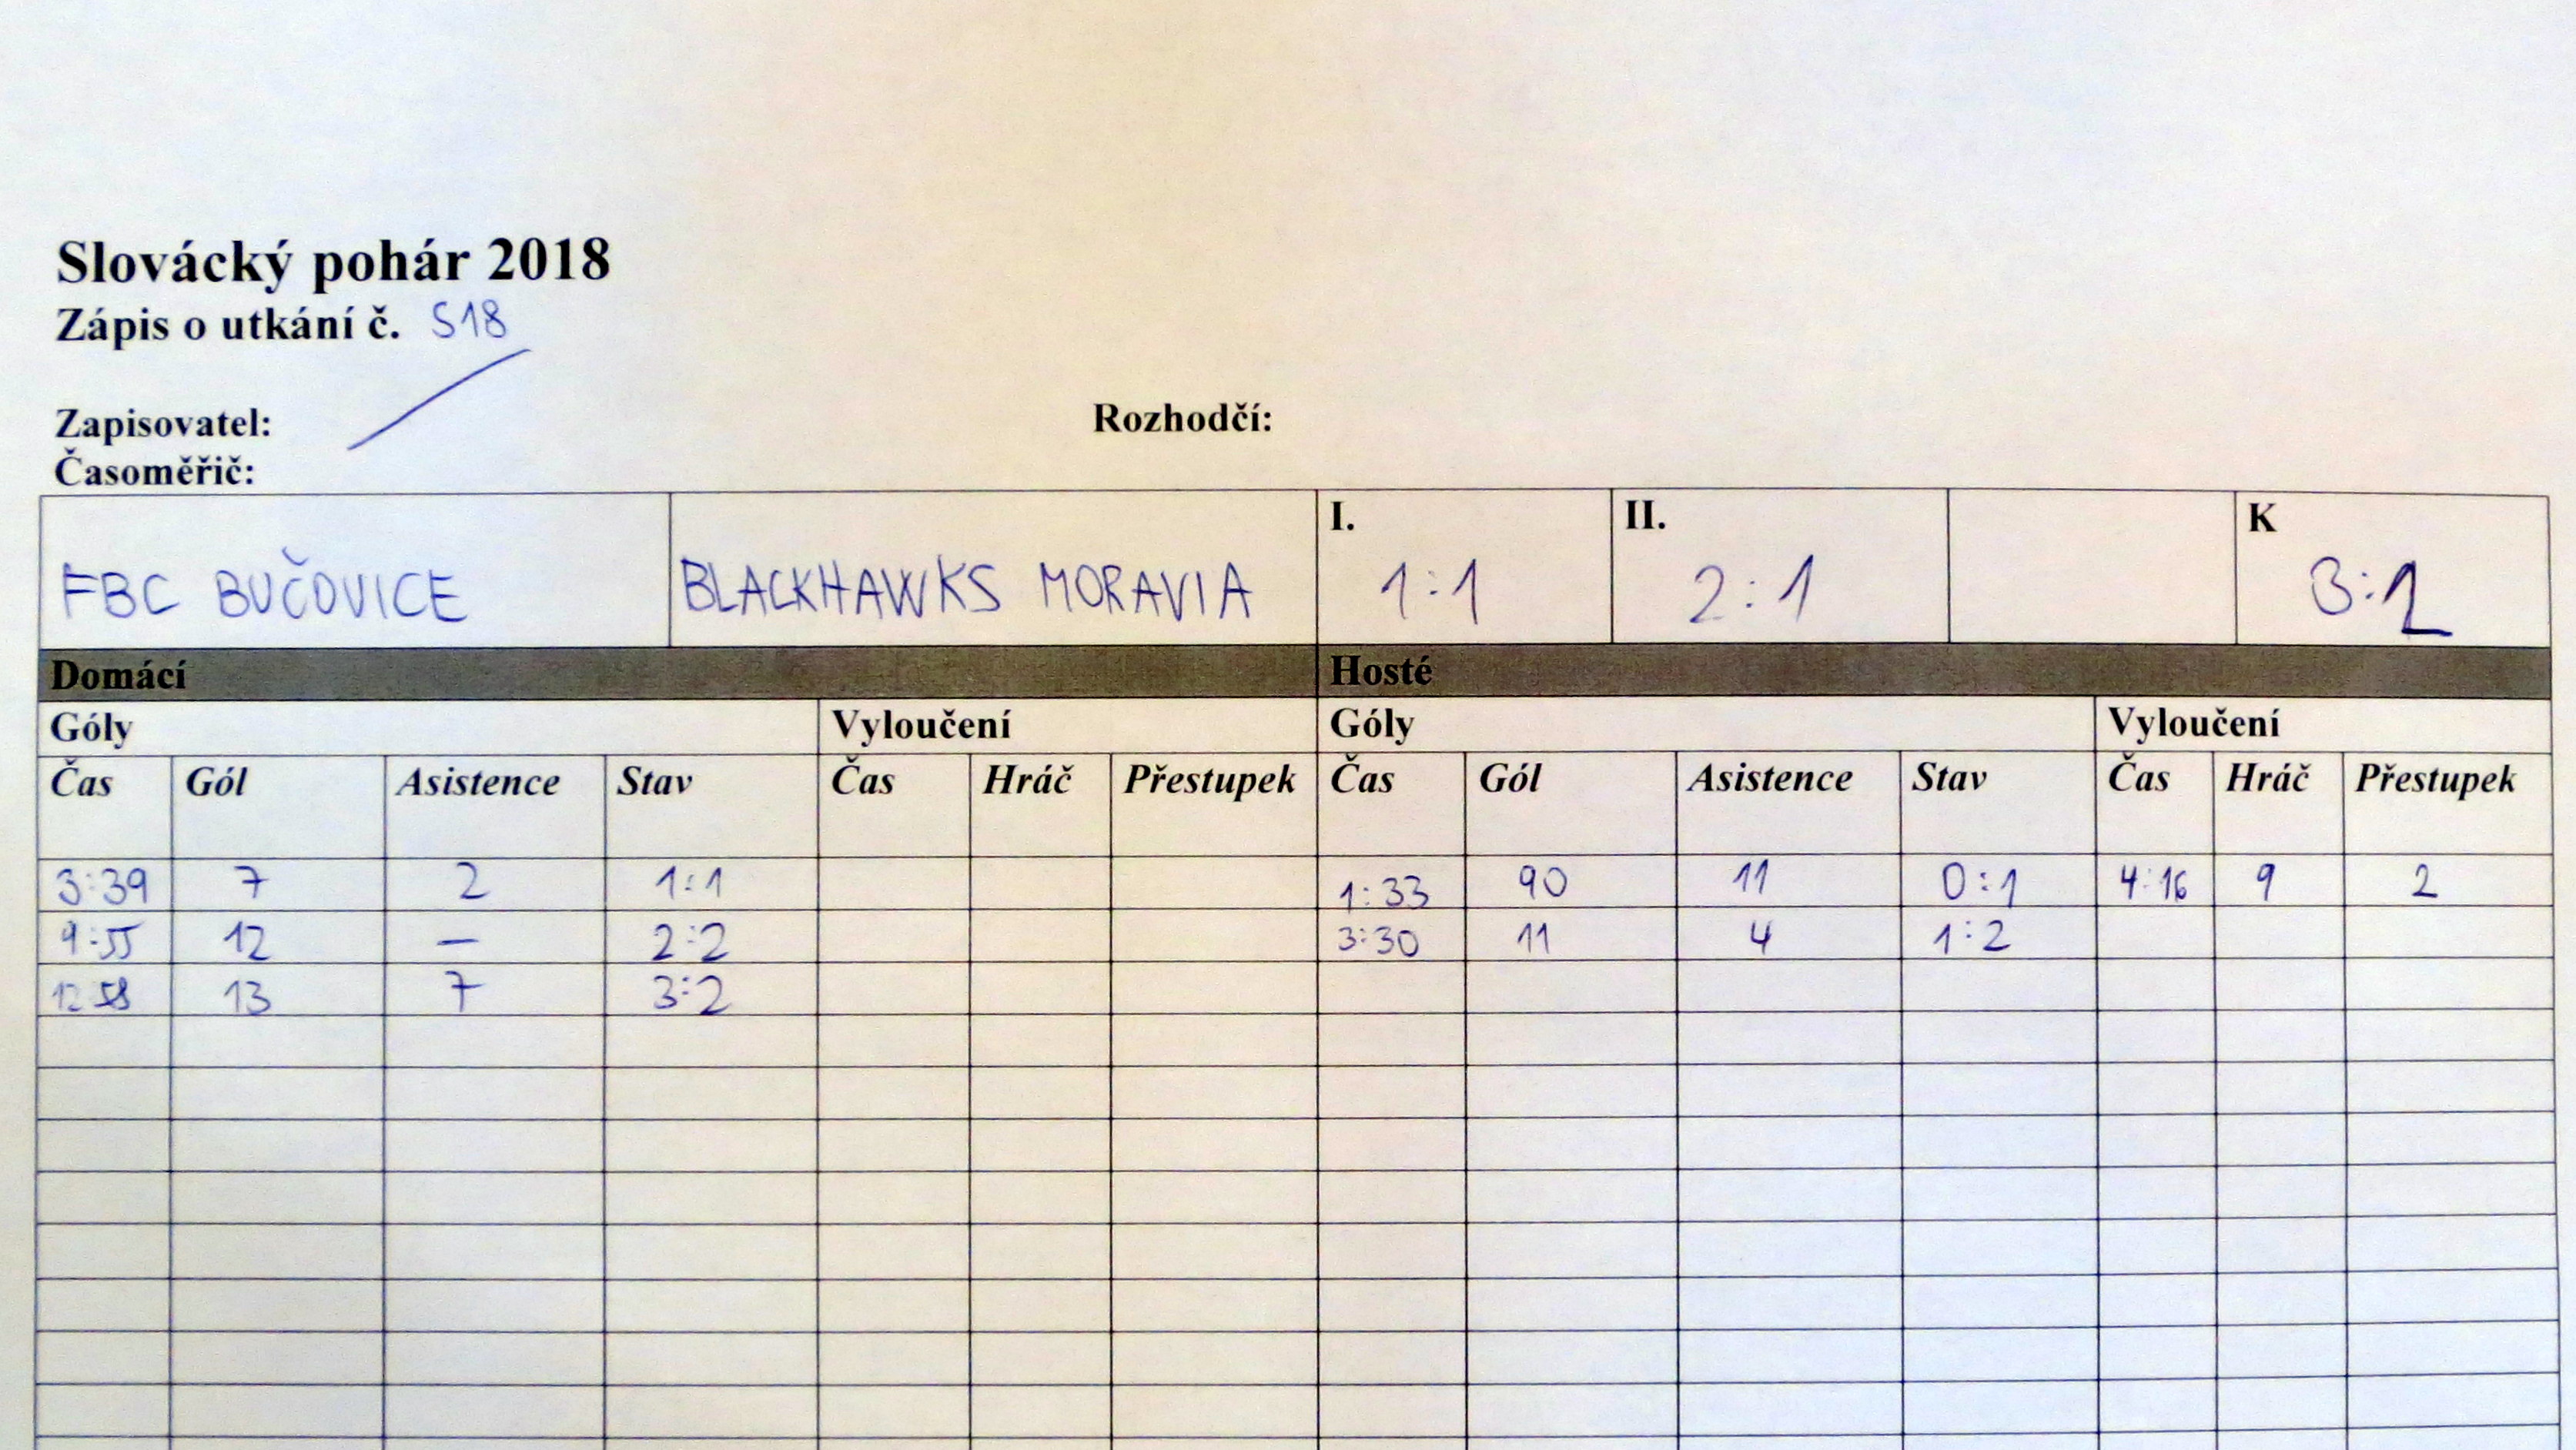 Slovácký pohár 2018
Zápis o utkání č. S18
Zapisovatel:
Rozhodčí:
Časoměřič:
FBC BUČOVICE BLACKHAWKS MORAVIA I. 1:1 II. 2:1 K 3:2
Domácí Hosté
Góly Vyloučení Góly Vyloučení
Čas Gól Asistence Stav Čas Hráč Přestupek Čas Gól Asistence Stav Čas Hráč Přestupek
3:39 7 2 1:1 1:33 90 11 0:1 4:16 9 2
9:55 12 — 2:2 3:30 11 4 1:2
12 58 13 7 3:2